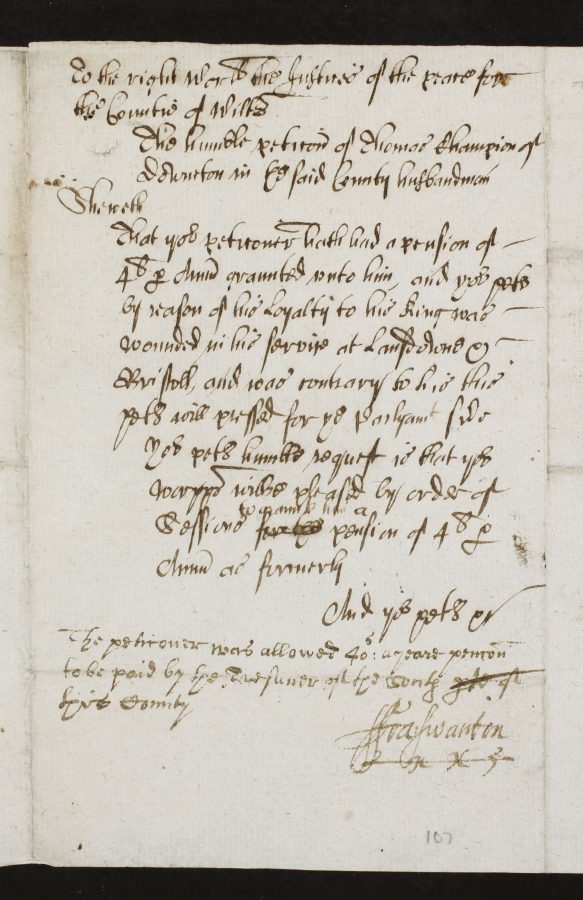 To the right Wor:ll the Justices of the peace for
the Countie of Wilts
The humble peticon of Thomas Champion of
Downton in the said County husbandman
Sheweth
That yor peticoner hath had a pension of
4ll p Annu graunted unto him, and yor petr
by reason of his Loyalty to his King was
wounded in his service at Lansdowne &
Bristoll, and was contrary to his the
petrs will pressed for ye Parliamt side
Yor petrs humble request is that yor
worpps wilbe pleased by order of
Sessions to graunt him a pension of 4ll p
Annu as formerly
And yor petr &c
The peticoner was allowed 40s: a yeare pencon
to be paid by the Tresurer of the South of
this County
Fra: Swanton
107